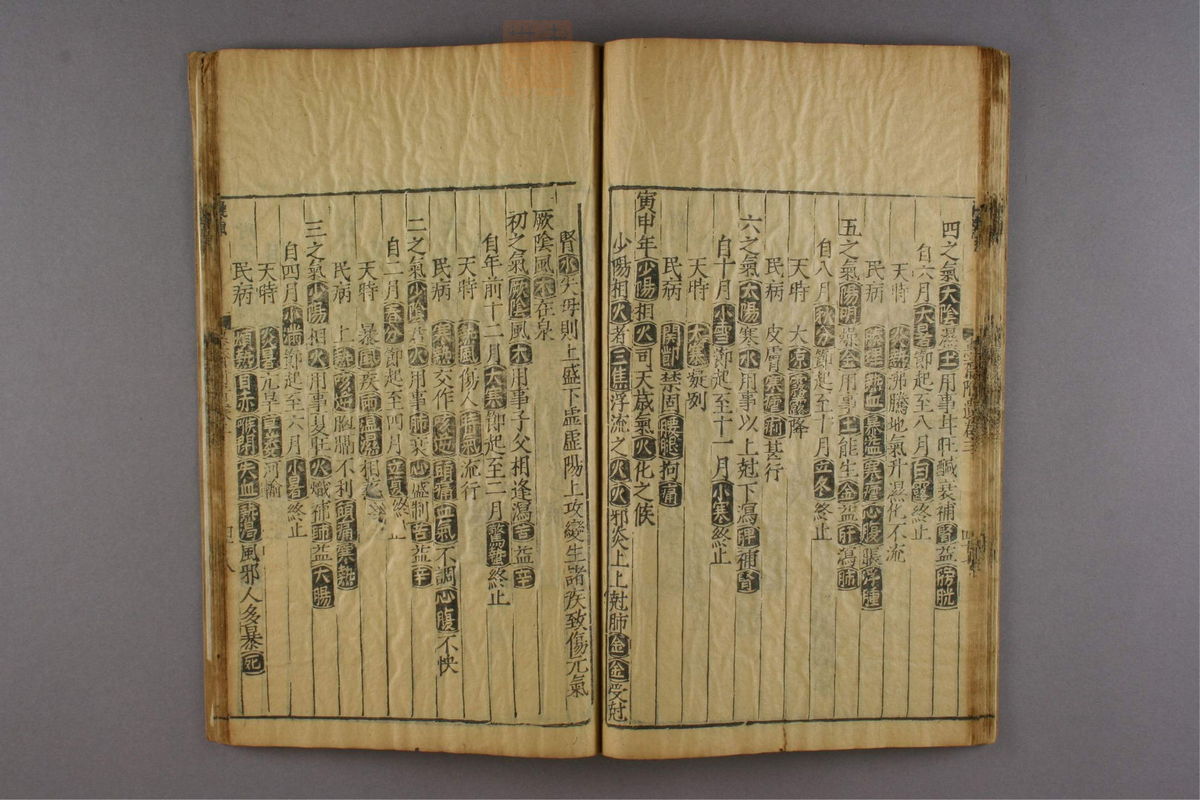 四之氣太陰濕土用事耳旺鹹衰補腎益膀胱
自六月大暑節起至八月白露終止
天時　火熱沸騰地氣升濕化不流
民病　熱血暴溢寒瘧心腹脹浮腫
五之氣陽明燥金用事土能生金益肝瀉肺
自八月秋分節起至十月立冬終止
天時　大凉霧露降
民病　皮膚寒瘧痢甚行
六之氣太陽寒水用事以上尅下瀉脾補腎
自十月小雪節起至十一月小寒終止
天時　大寒凝冽
民病　關節禁固腰腿拘痛
寅申年少陽相火司天歲氣火化之候
少陽相火者三焦浮流之火火邪炎上上尅肺金金受尅
腎水失母則上盛下虛虛陽上攻變生諸疾致傷元氣
厥陰風木在泉
初之氣厥陰風木用事子父相逢瀉苦益辛
自年前十二月大寒節起至二月驚蟄終止
天時　熱風傷人時氣流行
民病　寒熱交作咳逆頭痛血氣不調心腹不快
二之氣少陰君火用事肺衰心盛制苦益辛
自二月春分節起至四月立夏終止
天時　暴風疾雨溫濕相蒸
民病　上熱咳逆胸鬲不利頭痛寒熱
三之氣少陽相火用事夏旺火熾補肺益大腸
自四月小滿節起至六月小暑終止
天時　炎暑亢旱草萎河輸
民病　煩熱目赤喉閉失血熱渴風邪人多暴死